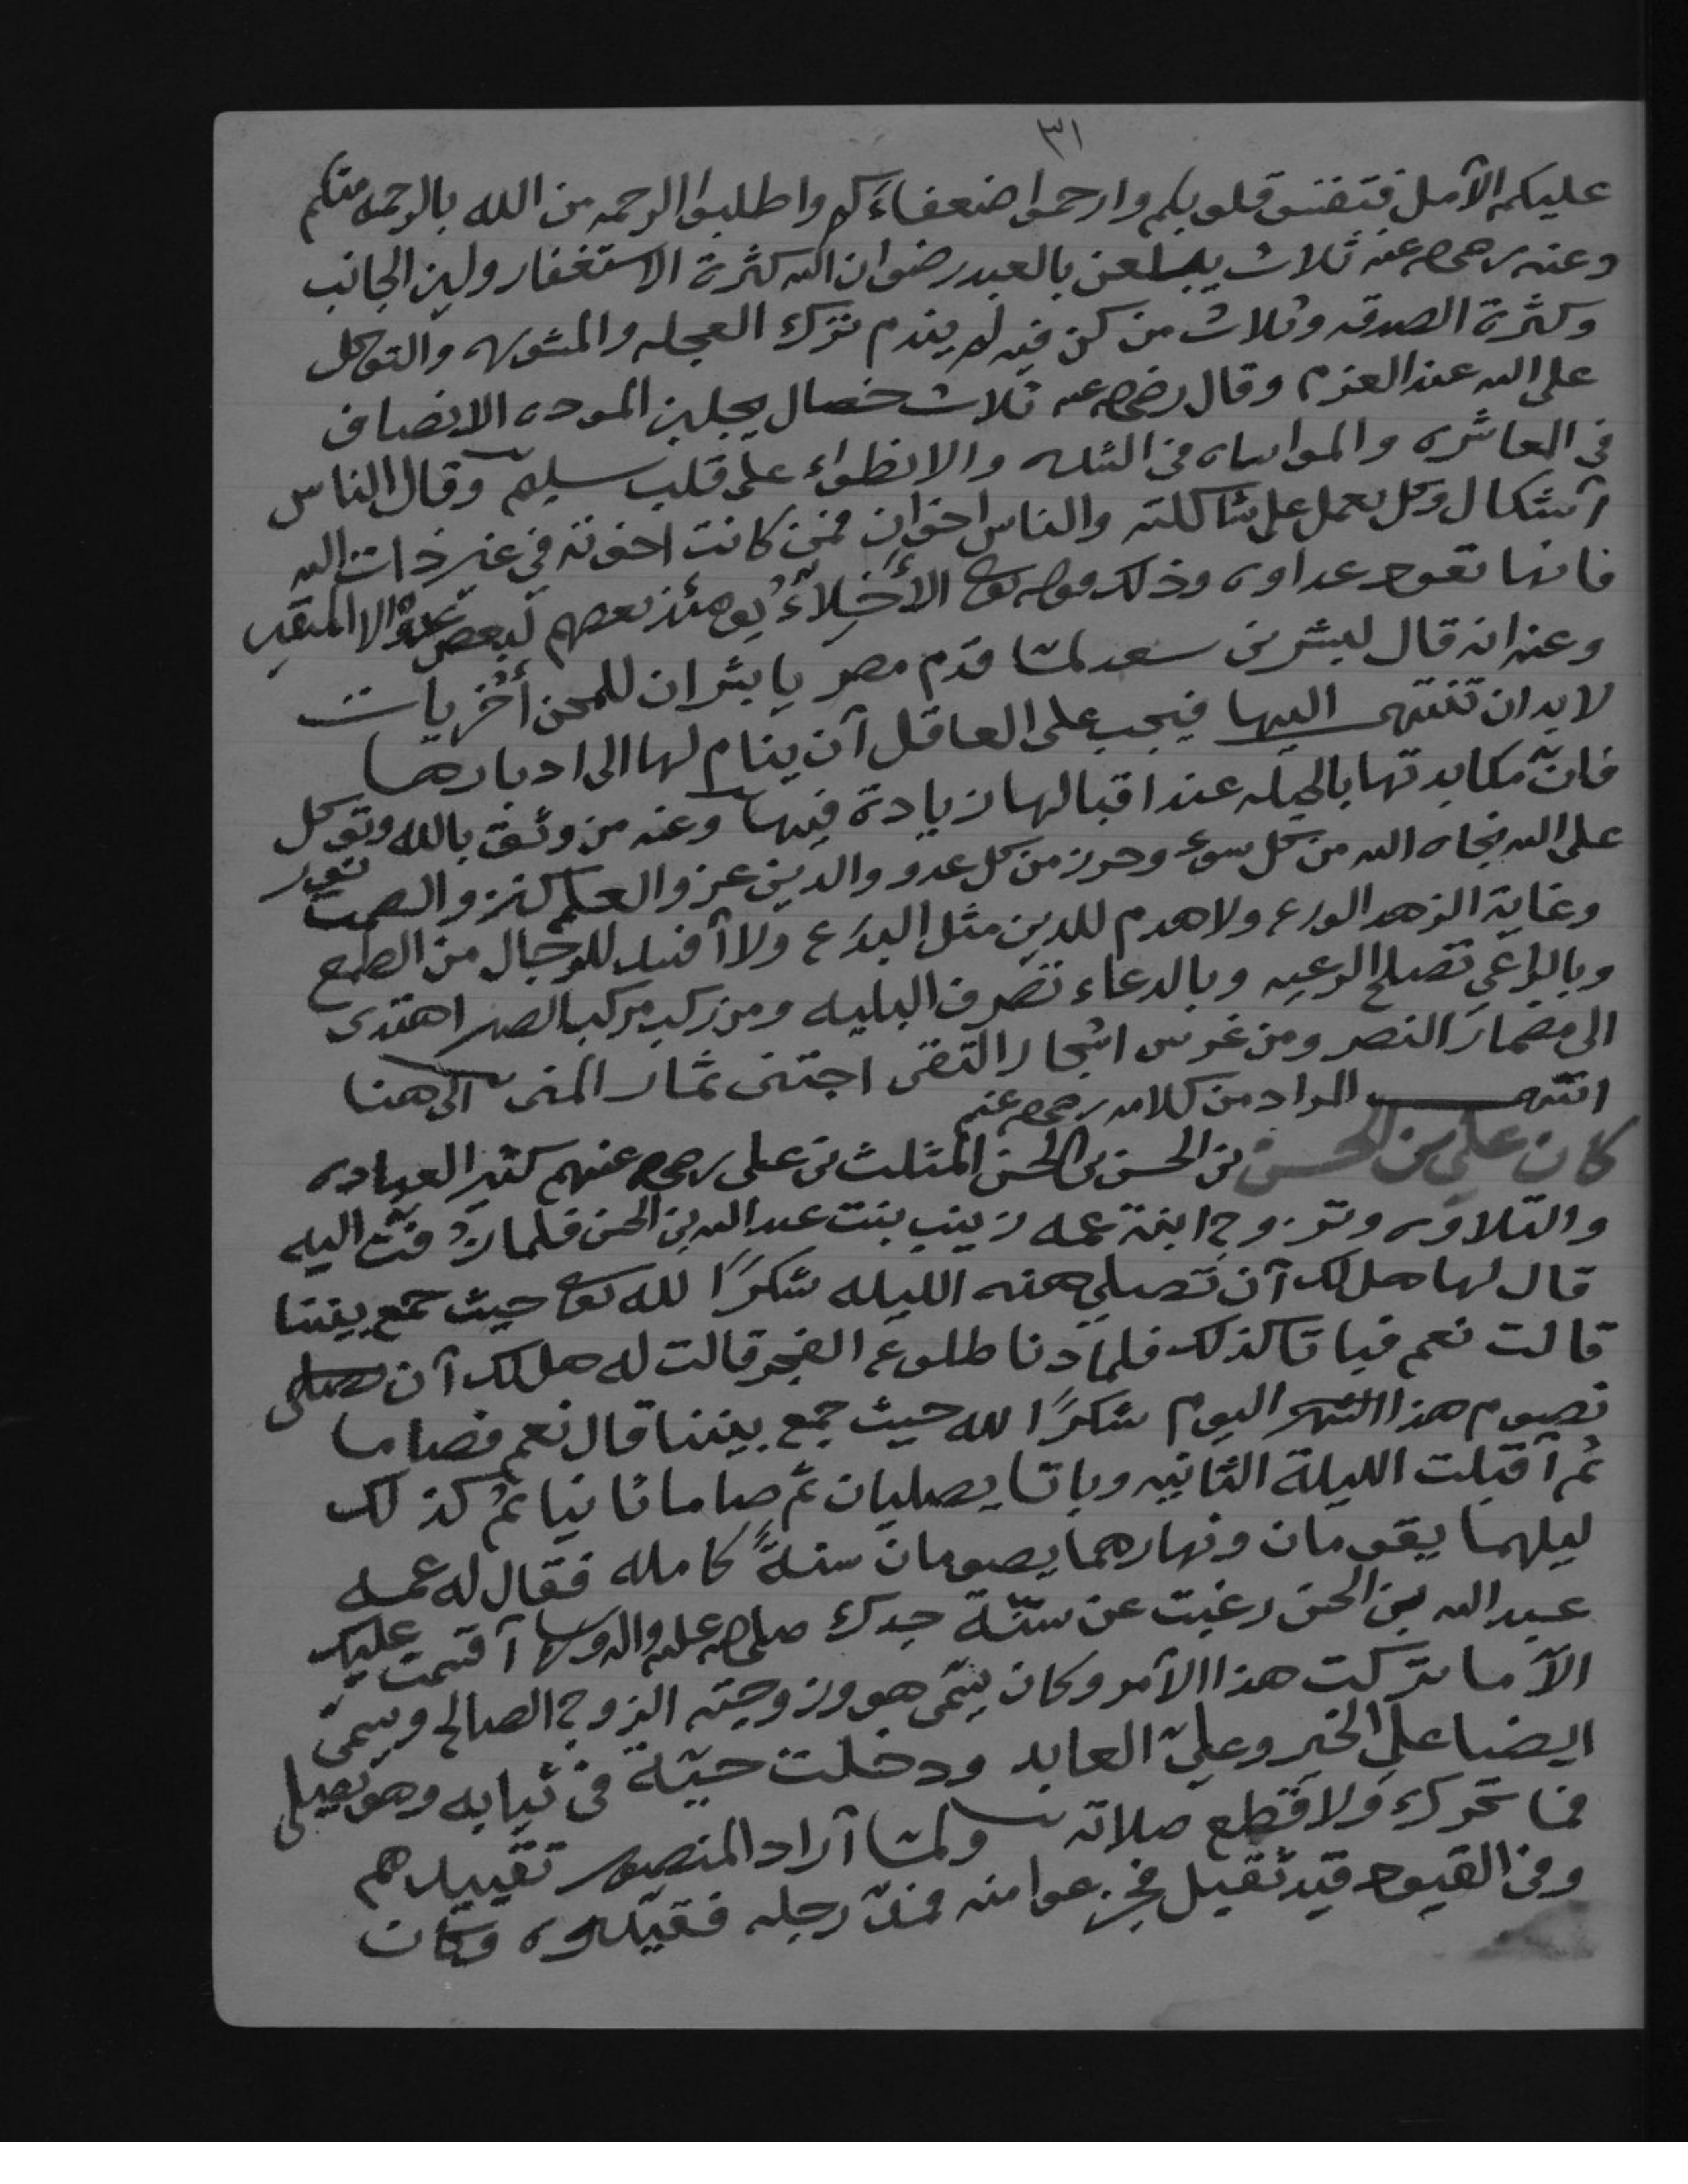 ٣١
عليكم الآمل فتقسو قلوبكم وارحموا ضعفاءكم واطلبوا الرحمه من الله بالرحمه منكم
وعنه رضي الله عنه ثلاث يبلغن بالعبد رضوان الله كثرة الاستغفار ولين الجانب
وكثرة الصدقه وثلاث من كن فيه لم يندم ترك العجله والمشوره والتوكل
على الله عند العزم وقال رضي الله عنه ثلاث خصال يجلبن الموده الانصاف
في المعاشره والمواساه في الشده والانطواء على قلب سليم وقال الناس
آشكال وكل يعمل على شاكلته والناس اخوان فمن كانت اخوته في غير ذات الله
فانها تعود عداوه وذلك قوله تعالى الأخلاّءُ يومئذ بعضهم لبعض عدوٌ الا المتقين
وعنه انه قال لبشر بن سعد لمّا قدم مصر يا بشر ان للمحن أُخريات
لا بد ان تنتهي اليها فيجب على العاقل آن ينام لها الى ادبارها
فانّ مكابدتها بالحيله عند اقبالها زيادة فيها وعنه من وثق بالله وتوكل
على الله نجاه الله من كل سوء وحرز من كل عدو والدين عز والعلم كنز والصمت نور
وغاية الزهد الورع ولا هدم للدين مثل البدع ولا آفسد للرجال من الطمع
وبالراعي تصلح الرعيه وبالدعاء تصرف البليه ومن ركب مركب الصبر اهتدى
الى مضمار النصر ومن غرس اشجار التقى اجتنى ثمار المنى الى هنا
انتهى المراد من كلامه رضي الله عنه
كان علي بن الحسن بن الحسن بن الحسن المثلث بن علي رضي الله عنهم كثير العباده
والتلاوه وتزوج ابنة عمه زينب بنت عبد الله بن الحسن فلما زُفّت اليه
قال لها هل لك آن تصلي هذه الليله شكرًا لله تعالى حيث جمع بيننا
قالت نعم فباتا كذلك فلما دنا طلوع الفجر قالت له هل لك آن
نصوم هذا اليوم شكرًا لله حيث جمع بيننا قال نعم فصاما
ثم آقبلت الليلة الثانيه وباتا يصليان ثم صاما ثانيا ثم كذلك
ليلهما يقومان ونهارهما يصومان سنةً كامله فقال له عمه
عبد الله بن الحسن رغبت عن سنّة جدك صلى الله عليه واله وسلم آقسمت عليك
الآ ما تركت هذا الآمر وكان يسمّى هو وزوجته الزوج الصالح ويسمى
ايضا علي الخير وعليّ العابد ودخلت حيّة في ثيابه وهو يصلي
فما تحرك ولا قطع صلاته ولمّا آراد المنصور تقييدهم
وفي القيود قيد ثقيل فجزعوا منه فمدّ رجله فقيّدوه وكان